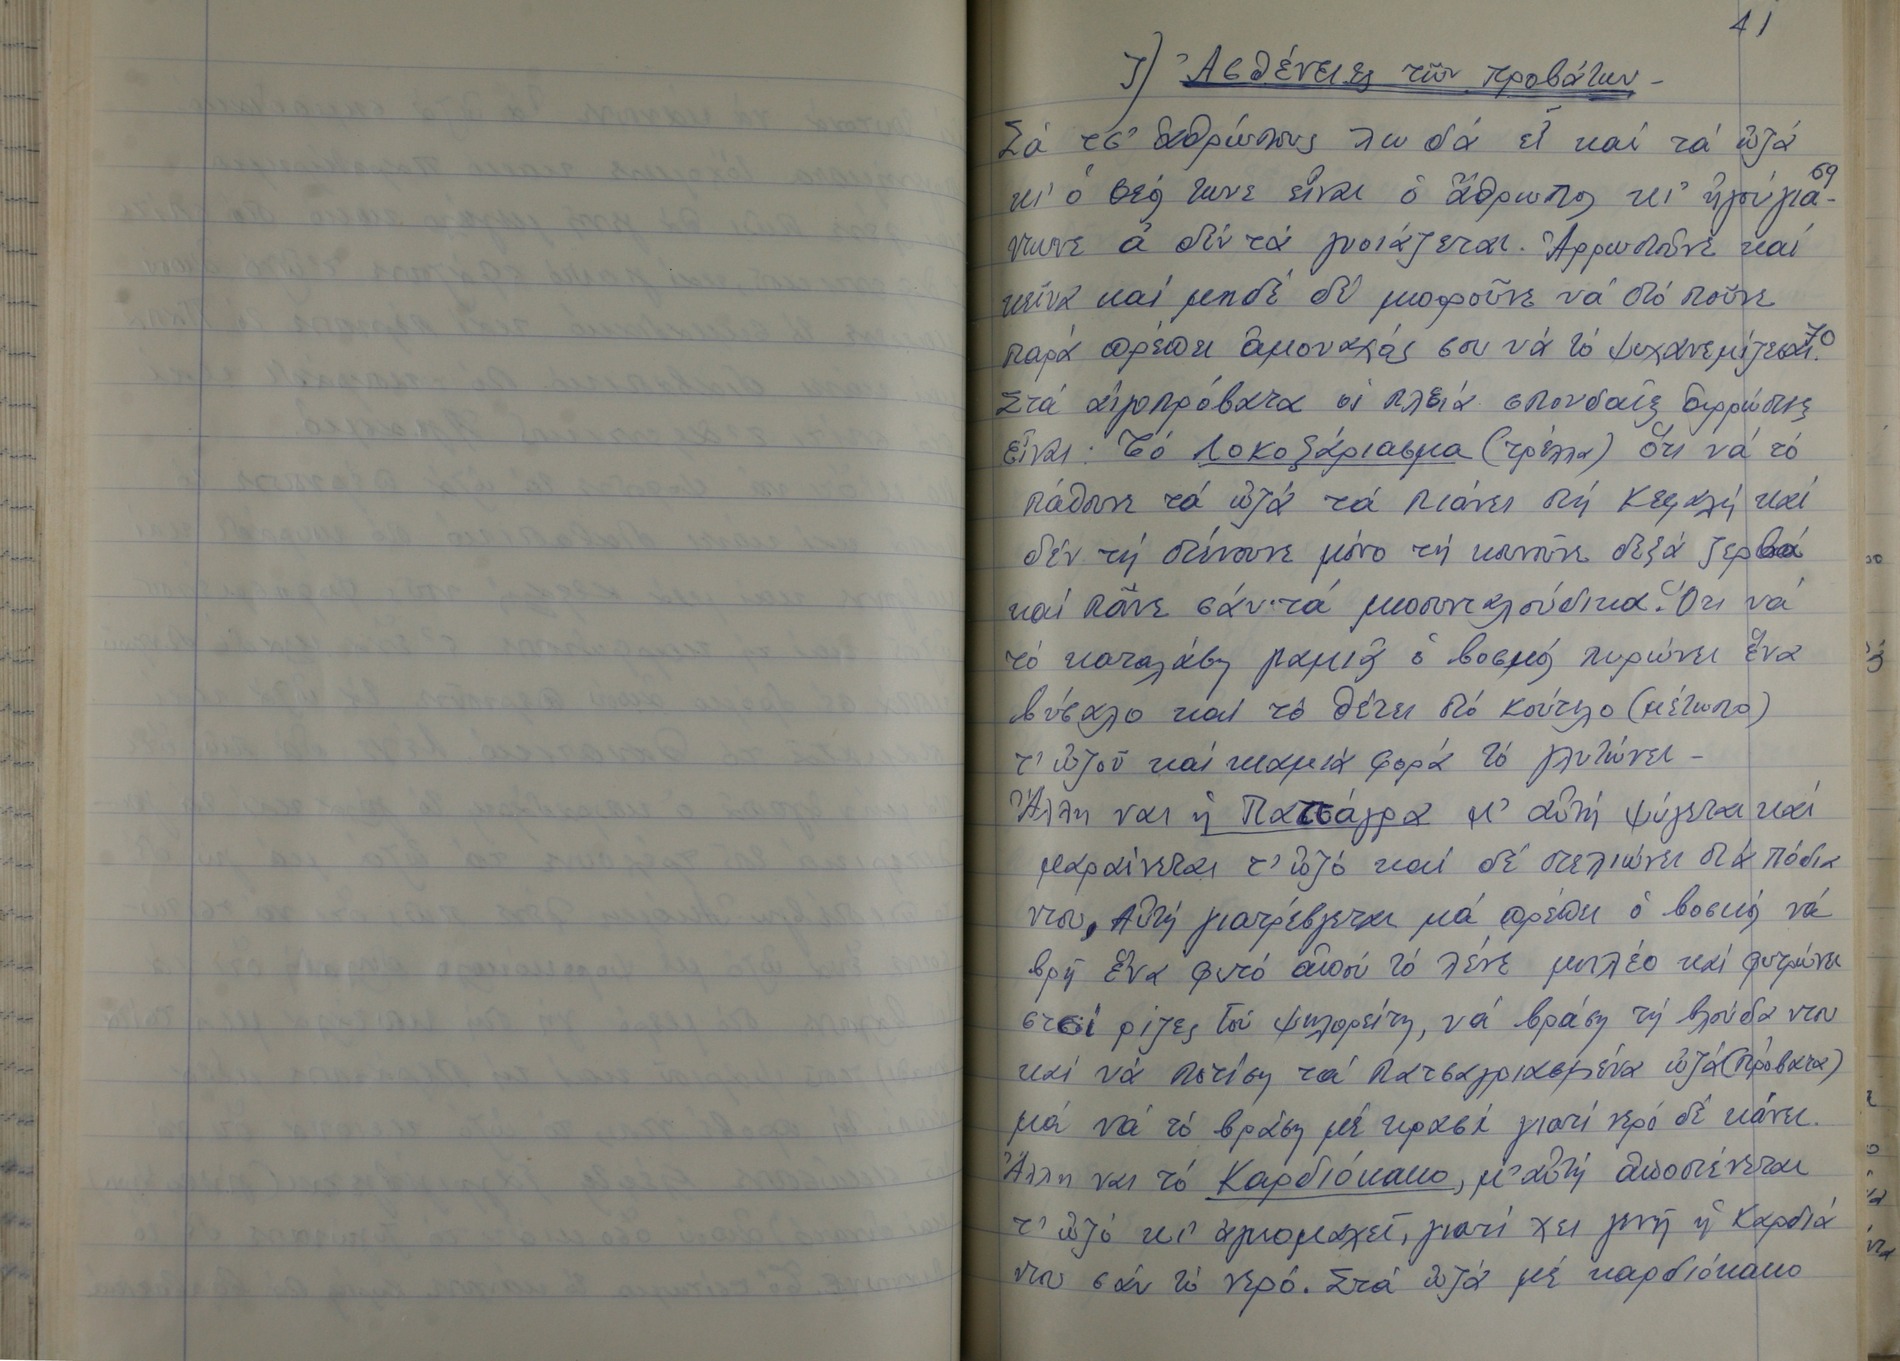 41
ζ) Ἀσθένειες τῶν προβάτων -
Σά τσ' ἀθρώπους λω δά εἶ καί τά ὠζά
κι' ὁ Θεός τωνε εἶναι ὁ ἄθρωπος κι' ἠλοίγιά- 69
ντωνε ἄ δέν τά γνοιάζεται. Ἀρρωστοῦνε καί
κεῖνα καί μηδέ δέ μποροῦνε νά στό ποῦνε
παρά πρέπει ἀμοναχός σου νά τό ψυχανεμίζεσαι. 70
Στά αἰγοπρόβατα οἱ πλειά σπουδαῖες ἀρρώστιες
εἶναι: Τό Λοκοξάριασμα (τρέλλα) Ὅτι νά τό
πάθουνε τά ὠζά τά πιάνει στή κεφαλή καί
δέν τή στένουνε μόνο τή κουνοῦνε δεξά ζερβά
καί πᾶνε σάν τά μποσυνταλούδικα. Ὅτι νά
τό καταλάβη μαμιά ὁ βοσκός πυρώνει ἕνα
βύσαλο καί τό θέτει στό κούτελο (μέτωπο)
τ' ὠζοῦ καί καμιά φορά τό γλυτώνει -
Ἄλλη ναι ἡ Πατσάγρα μ' αὐτή ψύγεται καί
μαραίνεται τ' ὠζό καί δέ στελιώνει στά πόδια
ντου, Αὐτή γιατρέβγεται μά πρέπει ὁ βοσκός νά
βρῆ ἕνα φυτό ἀπού τό λένε μπλέο καί φυτρώνει
στσί ρίζες τοῦ Ψηλορείτη, νά βράση τή βλούδα ντου
καί νά ποτίση τά πατσαγριασμένα ὠζά (πρόβατα)
μά νά τό βράση μέ κρασί γιατί νερό δέ κάνει.
Ἄλλη ναι τό Καρδιόκακο, μ' αὐτή ἀποστένεται
τ' ὠζό κι' ἀγκομαχεῖ, γιατί χει γενῆ ἡ καρδιά
ντου σάν τό νερό. Στά ὠζά μέ καρδιόκακο